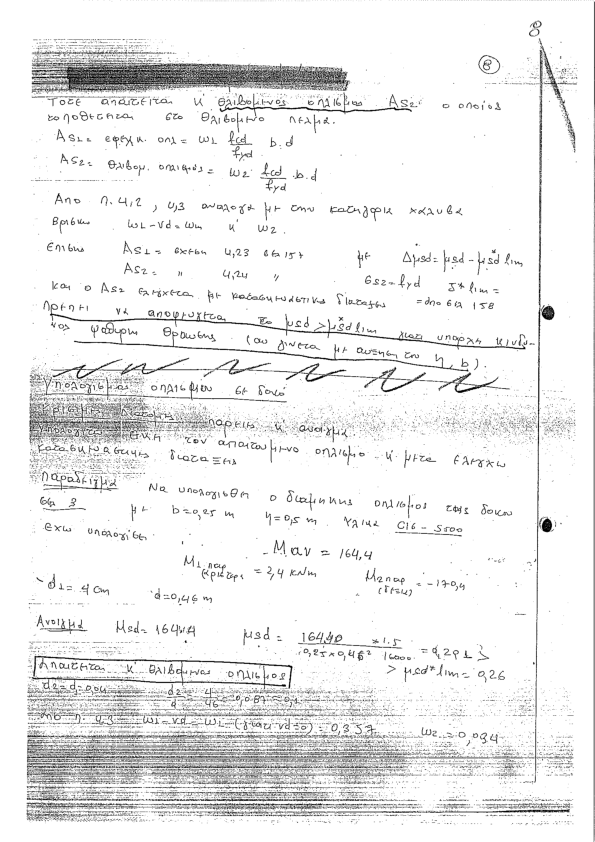 8
8
Τότε απαιτείται κ θλιβόμενος οπλισμός AS2 ο οποίος
τοποθετείται στο θλιβόμενο πέλμα.
AS1 = εφελκ. οπλ = ω1 fcd/fyd b.d
AS2 = θλιβομ. οπλισμός = ω2 fcd/fyd b.d
Από Π. 4,2, 4,3 ανάλογα με την κατηγορία χάλυβα
βρίσκω ω1-Vd = ω1 κ ω2.
Επίσης AS1 = σχέση 4,23 σελ 157 με Δμsd = μsd - μsd* lim
AS2 = " 4,24 " σs2 = fyd ξ* lim =
και ο AS2 ελέγχεται με κατασκευαστικές διατάξεις = από σελ 158
Πρέπει να αποφεύγεται το μsd > μsd* lim γιατί υπάρχει κίνδυ-
νος ψαθυρής θραύσης (αυ γίνεται με αύξηση του η, b).
Υπολογισμός οπλισμού σε δοκό
Κρίσιμες διατομές παρειές κ άνοιγμα
τον απαιτούμενο οπλισμό κ μετά ελέγχω
κατασκευαστικής διάταξης
Παράδειγμα Να υπολογισθεί ο διαμήκης οπλισμός της δοκού
σελ 3 με b=0,25 m η=0,5 m υλικά C16 - S500
έχω υπολογίσει
Mαν = 164,4
M1 παρ = 2,4 kNm M2παρ = -170,4
d1 = 4 cm d=0,46 m
Άνοιγμα Msd = 164,4 μsd = 164,40 * 1.5 / 0,25 x 0,46² 16000 = 0,291 >
> μsd* lim = 0,26
Απαιτείται κ θλιβόμενος οπλισμός
d2 = d1 = 0,04 d2/d = 4/46 = 0,087 = 0,1
από Π. 4.3 ω1-Vd = ω1 (γιατί Vd=0) = 0,357 ω2 = 0,034